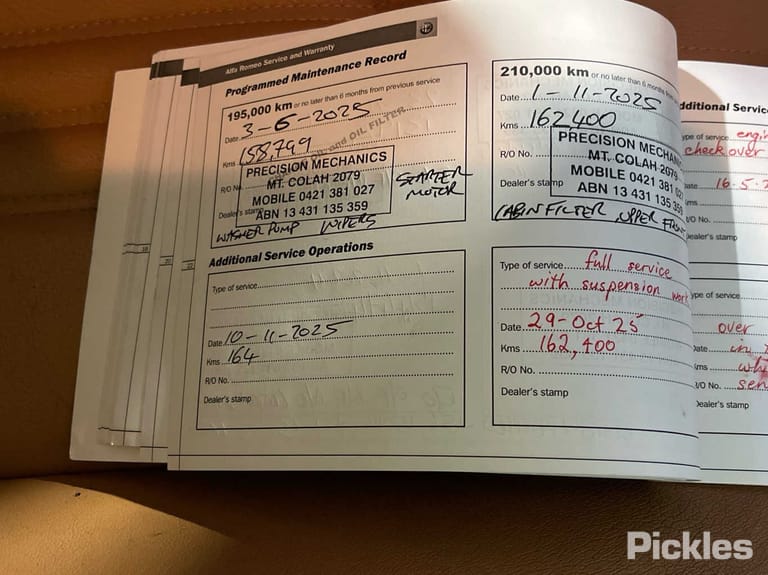 Alfa Romeo Service and Warranty
Programmed Maintenance Record
195,000 km or no later than 6 months from previous service
Date 3-6-2025
Kms 158,799
and OIL FILTER
R/O No.
PRECISION MECHANICS
MT. COLAH 2079
MOBILE 0421 381 027
ABN 13 431 135 359
Dealer's stamp
STARTER
MOTOR
WASHER PUMP WIPERS
Additional Service Operations
Type of service
Date 10-11-2025
Kms 164
R/O No.
Dealer's stamp
210,000 km or no later than 6 months from
Date 1-11-2025
Kms 162400
R/O No.
PRECISION MECHAN
MT. COLAH 2079
MOBILE 0421 381 02
ABN 13 431 135 35
Dealer's stamp
CABIN FILTER UPPER FRONT
Type of service full service
with suspension work
Date 29-Oct 25
Kms 162,400
R/O No.
Dealer's stamp
dditional Servic
ype of service engi
check over
ate 16.5.2
ms
/O No.
ealer's stamp
ype of service
over
ate in
ms whi
/O No. sen
ealer's stamp
18
20
22
Pickles